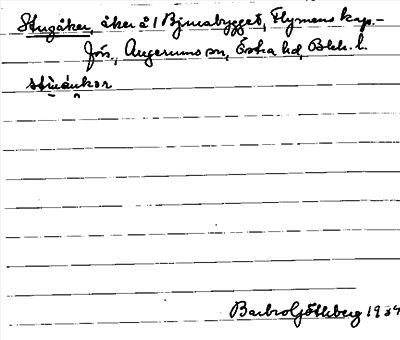 Stugåker, åker å 1 Bjurabygget, Flymens kap.-
förs., Augerums sn, Östra hd, Blek. l.
Barbro Götheberg 1934